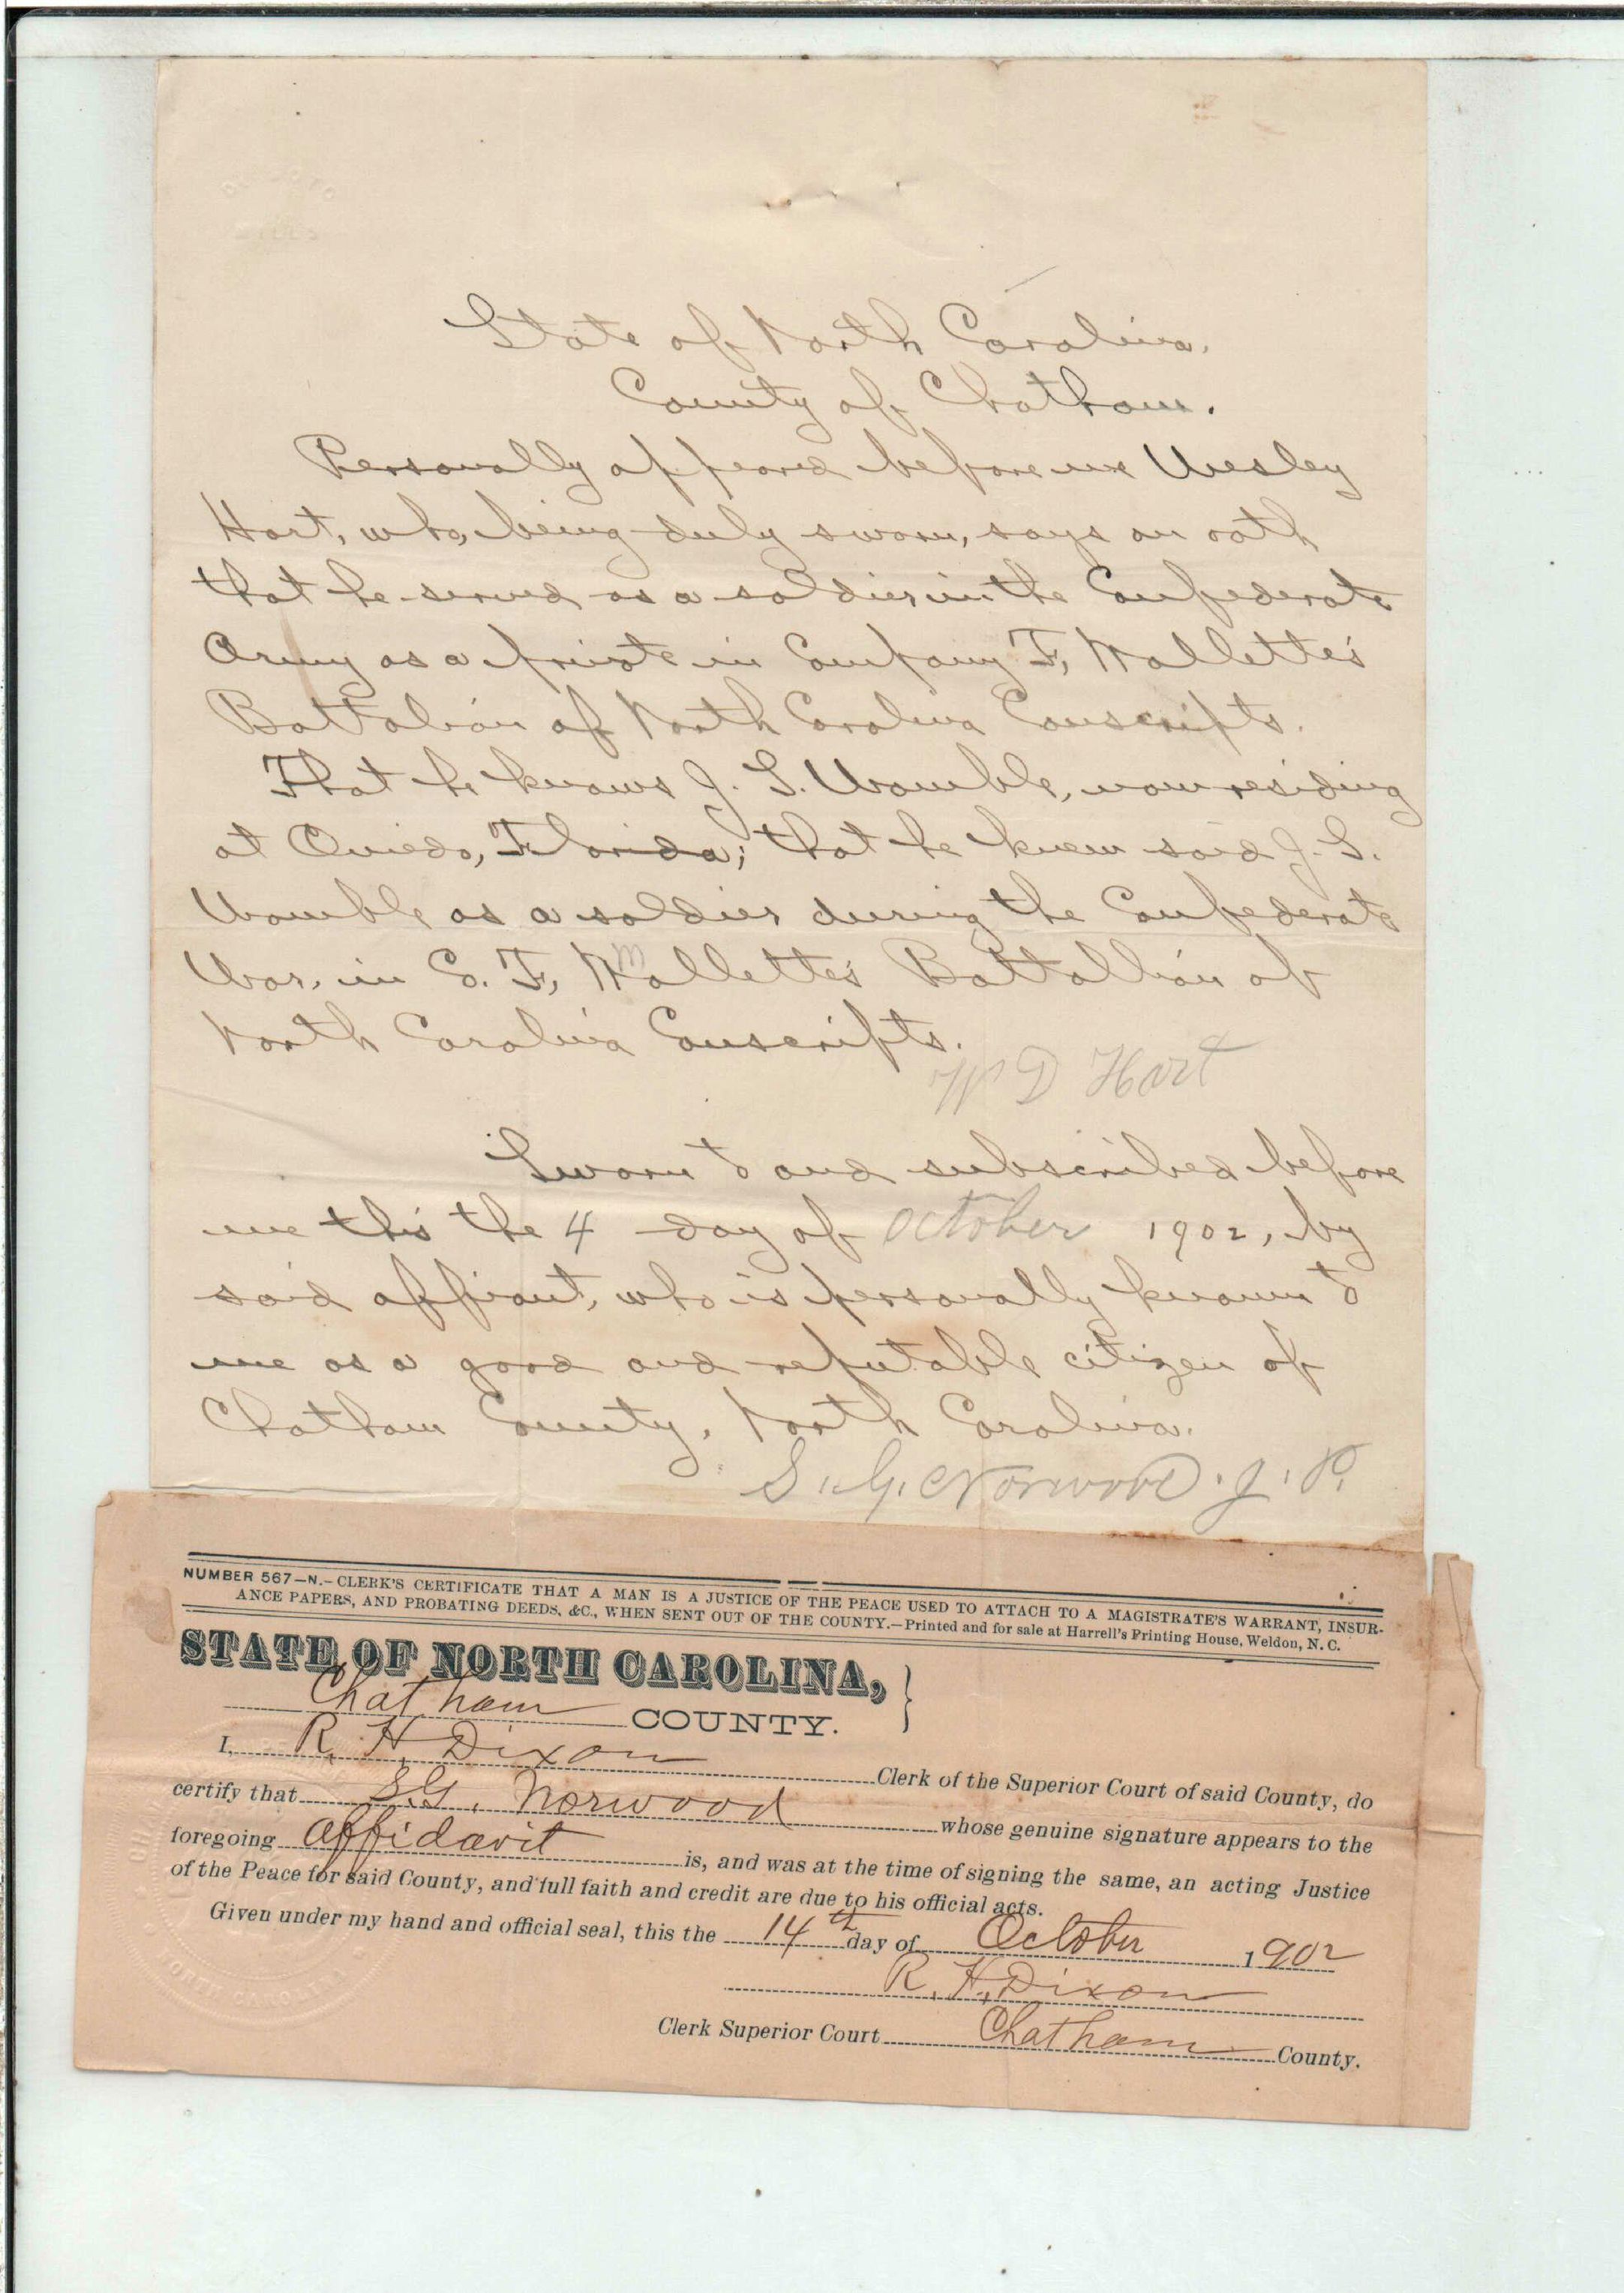 State of North Carolina.
County of Chatham.
Personally appeared before me Wesley
Hart, who, being duly sworn, says on oath
that he served as a soldier in the Confederate
Army as a private in Company F, Mallette's
Battalion of North Carolina Conscripts.
That he knows J. S. Womble, now residing
at Oviedo, Florida; that he knew said J. S.
Womble as a soldier during the Confederate
War, in Co. F, Mallette's Battallion of
North Carolina Conscripts.
W D Hart
Sworn to and subscribed before
me this the 4 day of October 1902, by
said affiant, who is personally known to
me as a good and reputable citizen of
Chatham County, North Carolina.
S. G. Norwood. J. P.
NUMBER 567—N.—CLERK'S CERTIFICATE THAT A MAN IS A JUSTICE OF THE PEACE USED TO ATTACH TO A MAGISTRATE'S WARRANT, INSUR-
ANCE PAPERS, AND PROBATING DEEDS, &C., WHEN SENT OUT OF THE COUNTY.—Printed and for sale at Harrell's Printing House, Weldon, N. C.
STATE OF NORTH CAROLINA,
Chatham COUNTY.
I, R. H. Dixon Clerk of the Superior Court of said County, do
certify that S.G. Norwood whose genuine signature appears to the
foregoing affidavit is, and was at the time of signing the same, an acting Justice
of the Peace for said County, and full faith and credit are due to his official acts.
Given under my hand and official seal, this the 14th day of October 1902
R. H. Dixon
Clerk Superior Court Chatham County.